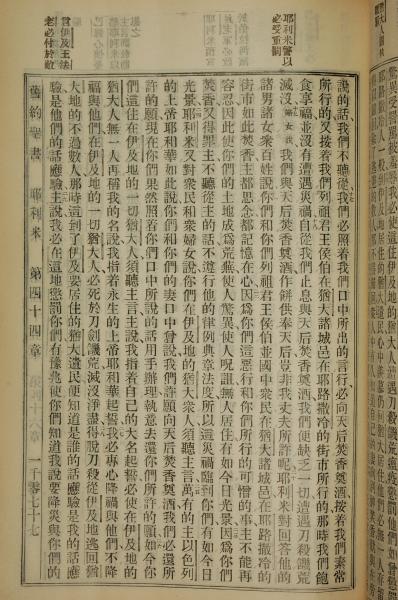 耶利米警以
必受重罰
言伊及王法
老必付於敵
說的話我們不聽從我們必照着我們口中所出的言行必向天后焚香奠酒按着我們素常
所行的又接着我們列祖君王侯伯在猶大諸城邑在耶路撒冷的街市所行的那時我們飽
食享福並沒有遭遇災禍自從我們止息與天后焚香奠酒我們便缺乏一切遭遇刀殺饑荒
滅沒婦女說我們與天后焚香奠酒作餅供奉天后豈非我丈夫所許呢耶利米對回答他的
諸男諸女衆百姓說你們和你們列祖君王侯伯並國中衆民在猶大諸城邑在耶路撒冷的
街市如此焚香主都思念都記憶在心因爲你們這惡行和你們所行的可憎的事主不能再
容忍因此使你們的土地成爲荒蕪使人驚異使人呪詛無人居住有如今日光景因爲你們
焚香又得罪主不聽從主的話不遵行他的律例典章法度所以這災禍臨到你們有如今日
光景耶利米又對衆民和衆婦女說你們在伊及地的猶大衆人須聽主言萬有的主以色列
的上帝耶和華如此說你們和你們的妻口中曾說我們許願向天后焚香奠酒我們必還所
許的願現在你們果然照着你們口中所說的話用手辦理執意去還你們所許的願如今你
們這住在伊及地的猶大人須聽主言主說我指着自己的大名起誓必使在伊及地的
猶大人無一人再稱我的名說我指着永生的上帝耶和華起誓我必專心降禍與他們不降
福與他們在伊及地的一切猶大人必死於刀劍饑荒滅沒淨盡得脫刀殺從伊及地逃回猶
大地的不過數人那時這到了伊及要居住的猶大遺民便知道是誰的話應驗是我的話應
驗是他們的話應驗主說我必在這地懲罰你們有豫兆使你們知道我說要降災與你們的
舊約聖書 耶利米 第四十四章 一千零七十七